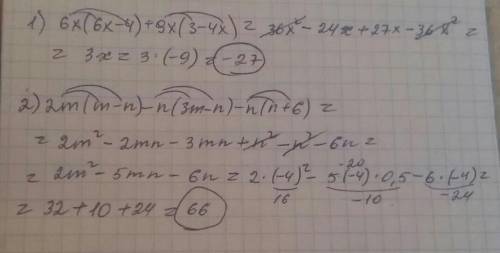 1) 6x(6x-4)+9x(3-4x) = 36x² - 24x + 27x - 36x² =
= 3x = 3·(-9) = -27
2) 2m(m-n)-n(3m-n)-n(n+6) =
= 2m² - 2mn - 3mn + n² - n² - 6n =
= 2m² - 5mn - 6n = 2·(-4)² - 5·(-4)·0,5 - 6·(-4) =
16 -20 -10 -24
= 32 + 10 + 24 = 66